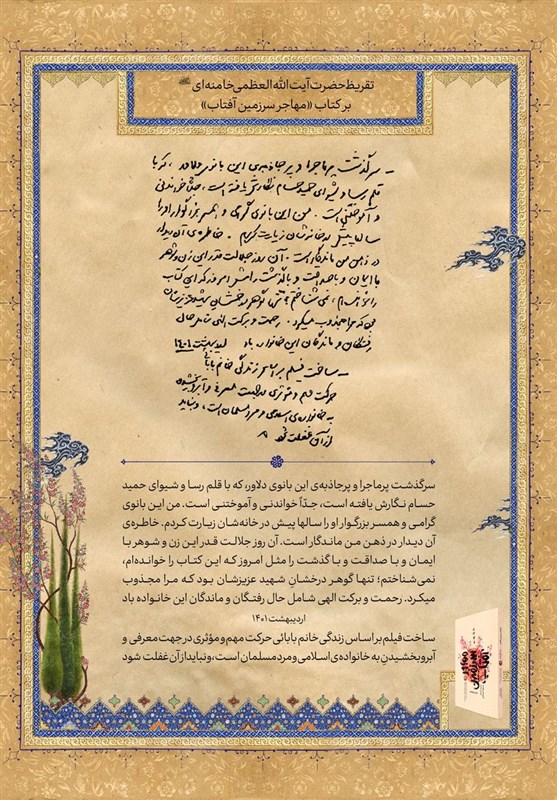 تقریظ حضرت آیت‌الله‌العظمی خامنه‌ای
بر کتاب «مهاجر سرزمین آفتاب»
ـ سرگذشت پرماجرا و پرجاذبه‌ی این بانوی دلاور، که با
قلم رسا و شیوای حمید حسام نگارش یافته است، جدّاً خواندنی
و آموختنی است. من این بانوی گرامی و همسر بزرگوار او را
سالها پیش در خانه‌شان زیارت کردم. خاطره‌ی آن دیدار
در ذهن من ماندگار است. آن روز جلالت قدر این زن و شوهر
با ایمان و با صداقت و با گذشت را مثل امروز که این کتاب
را خوانده‌ام، نمی‌شناختم؛ تنها گوهر درخشان شهید عزیزشان
بود که مرا مجذوب میکرد. رحمت و برکت الهی شامل حال
رفتگان و ماندگان این خانواده باد اردیبهشت ۱۴۰۱
ـ ساخت فیلم بر اساس زندگی خانم بابائی
حرکت مهم و مؤثری در جهت معرفی و آبرو بخشیدن
به خانواده‌ی اسلامی و مرد مسلمان است، و نباید
از آن غفلت شود
سرگذشت پرماجرا و پرجاذبه‌ی این بانوی دلاور، که با قلم رسا و شیوای حمید
حسام نگارش یافته است، جدّاً خواندنی و آموختنی است. من این بانوی
گرامی و همسر بزرگوار او را سالها پیش در خانه‌شان زیارت کردم. خاطره‌ی
آن دیدار در ذهن من ماندگار است. آن روز جلالت قدر این زن و شوهر با
ایمان و با صداقت و با گذشت را مثل امروز که این کتاب را خوانده‌ام،
نمی‌شناختم؛ تنها گوهر درخشانِ شهید عزیزشان بود که مرا مجذوب
میکرد. رحمت و برکت الهی شامل حال رفتگان و ماندگان این خانواده باد
اردیبهشت ۱۴۰۱
ساخت فیلم بر اساس زندگی خانم بابائی حرکت مهم و مؤثری در جهت معرفی و
آبرو بخشیدنِ به خانواده‌ی اسلامی و مرد مسلمان است، و نباید از آن غفلت شود